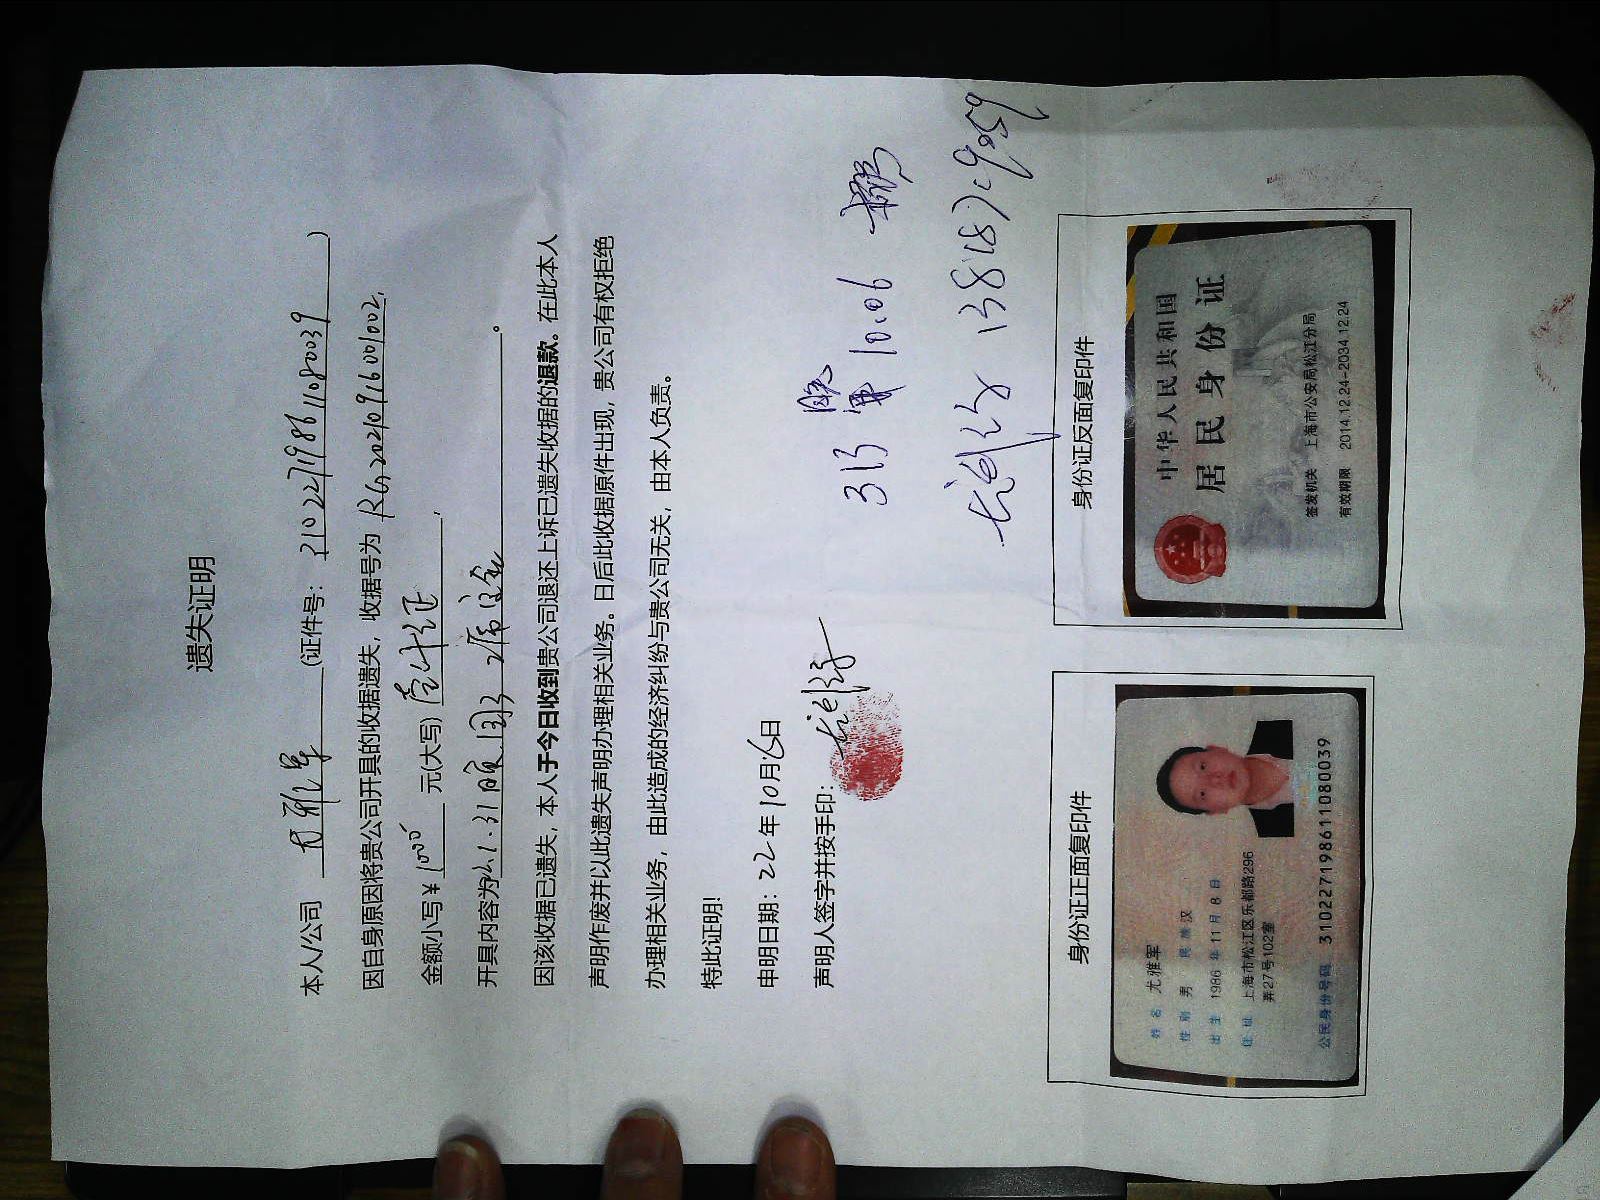 遗失证明
本人/公司 尤雅军 (证件号： 310227198611080039 )
因自身原因将贵公司开具的收据遗失，收据号为 RG20210916001002,
金额小写￥ 1000 元(大写) 壹仟元正 ，
开具内容为 定金 。
因该收据已遗失，本人于今日收到贵公司退还上诉已遗失收据的退款。在此本人
声明作废并以此遗失声明办理相关业务。日后此收据原件出现，贵公司有权拒绝
办理相关业务，由此造成的经济纠纷与贵公司无关，由本人负责。
特此证明!
申明日期：22年10月6日
声明人签字并按手印：
313
10.06
身份证正面复印件
姓名 尤雅军
性别 男 民族 汉
出生 1986 年 11 月 8 日
住址 上海市松江区乐都路296
弄27号102室
公民身份号码 310227198611080039
身份证反面复印件
中华人民共和国
居民身份证
签发机关 上海市公安局松江分局
有效期限 2014.12.24-2034.12.24